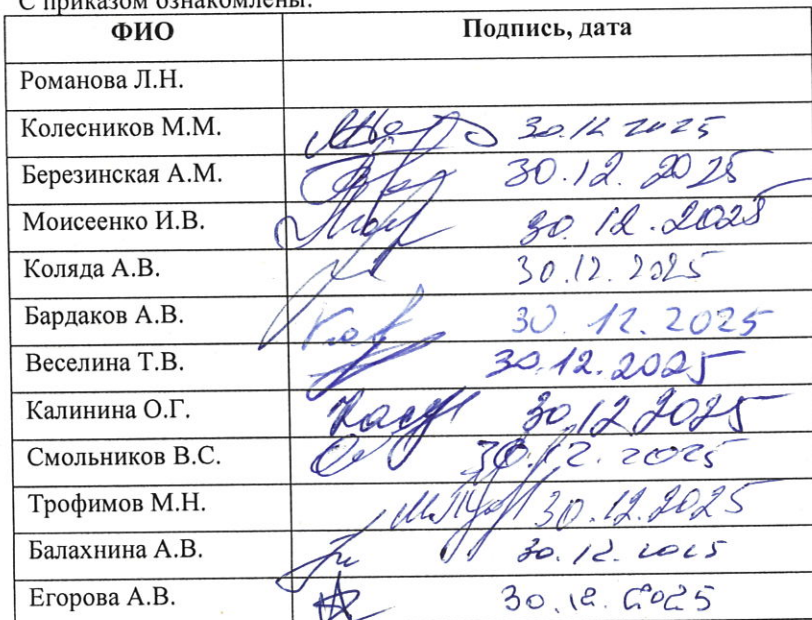 С приказом ознакомлены:
ФИО Подпись, дата
Романова Л.Н.
Колесников М.М. 30.12 2025
Березинская А.М. 30.12.2025
Моисеенко И.В. 30.12.2025
Коляда А.В. 30.12.2025
Бардаков А.В. 30.12.2025
Веселина Т.В. 30.12.2025
Калинина О.Г. 30.12 2025
Смольников В.С. 30.12.2025
Трофимов М.Н. 30.12.2025
Балахнина А.В. 30.12.2025
Егорова А.В. 30.12.2025